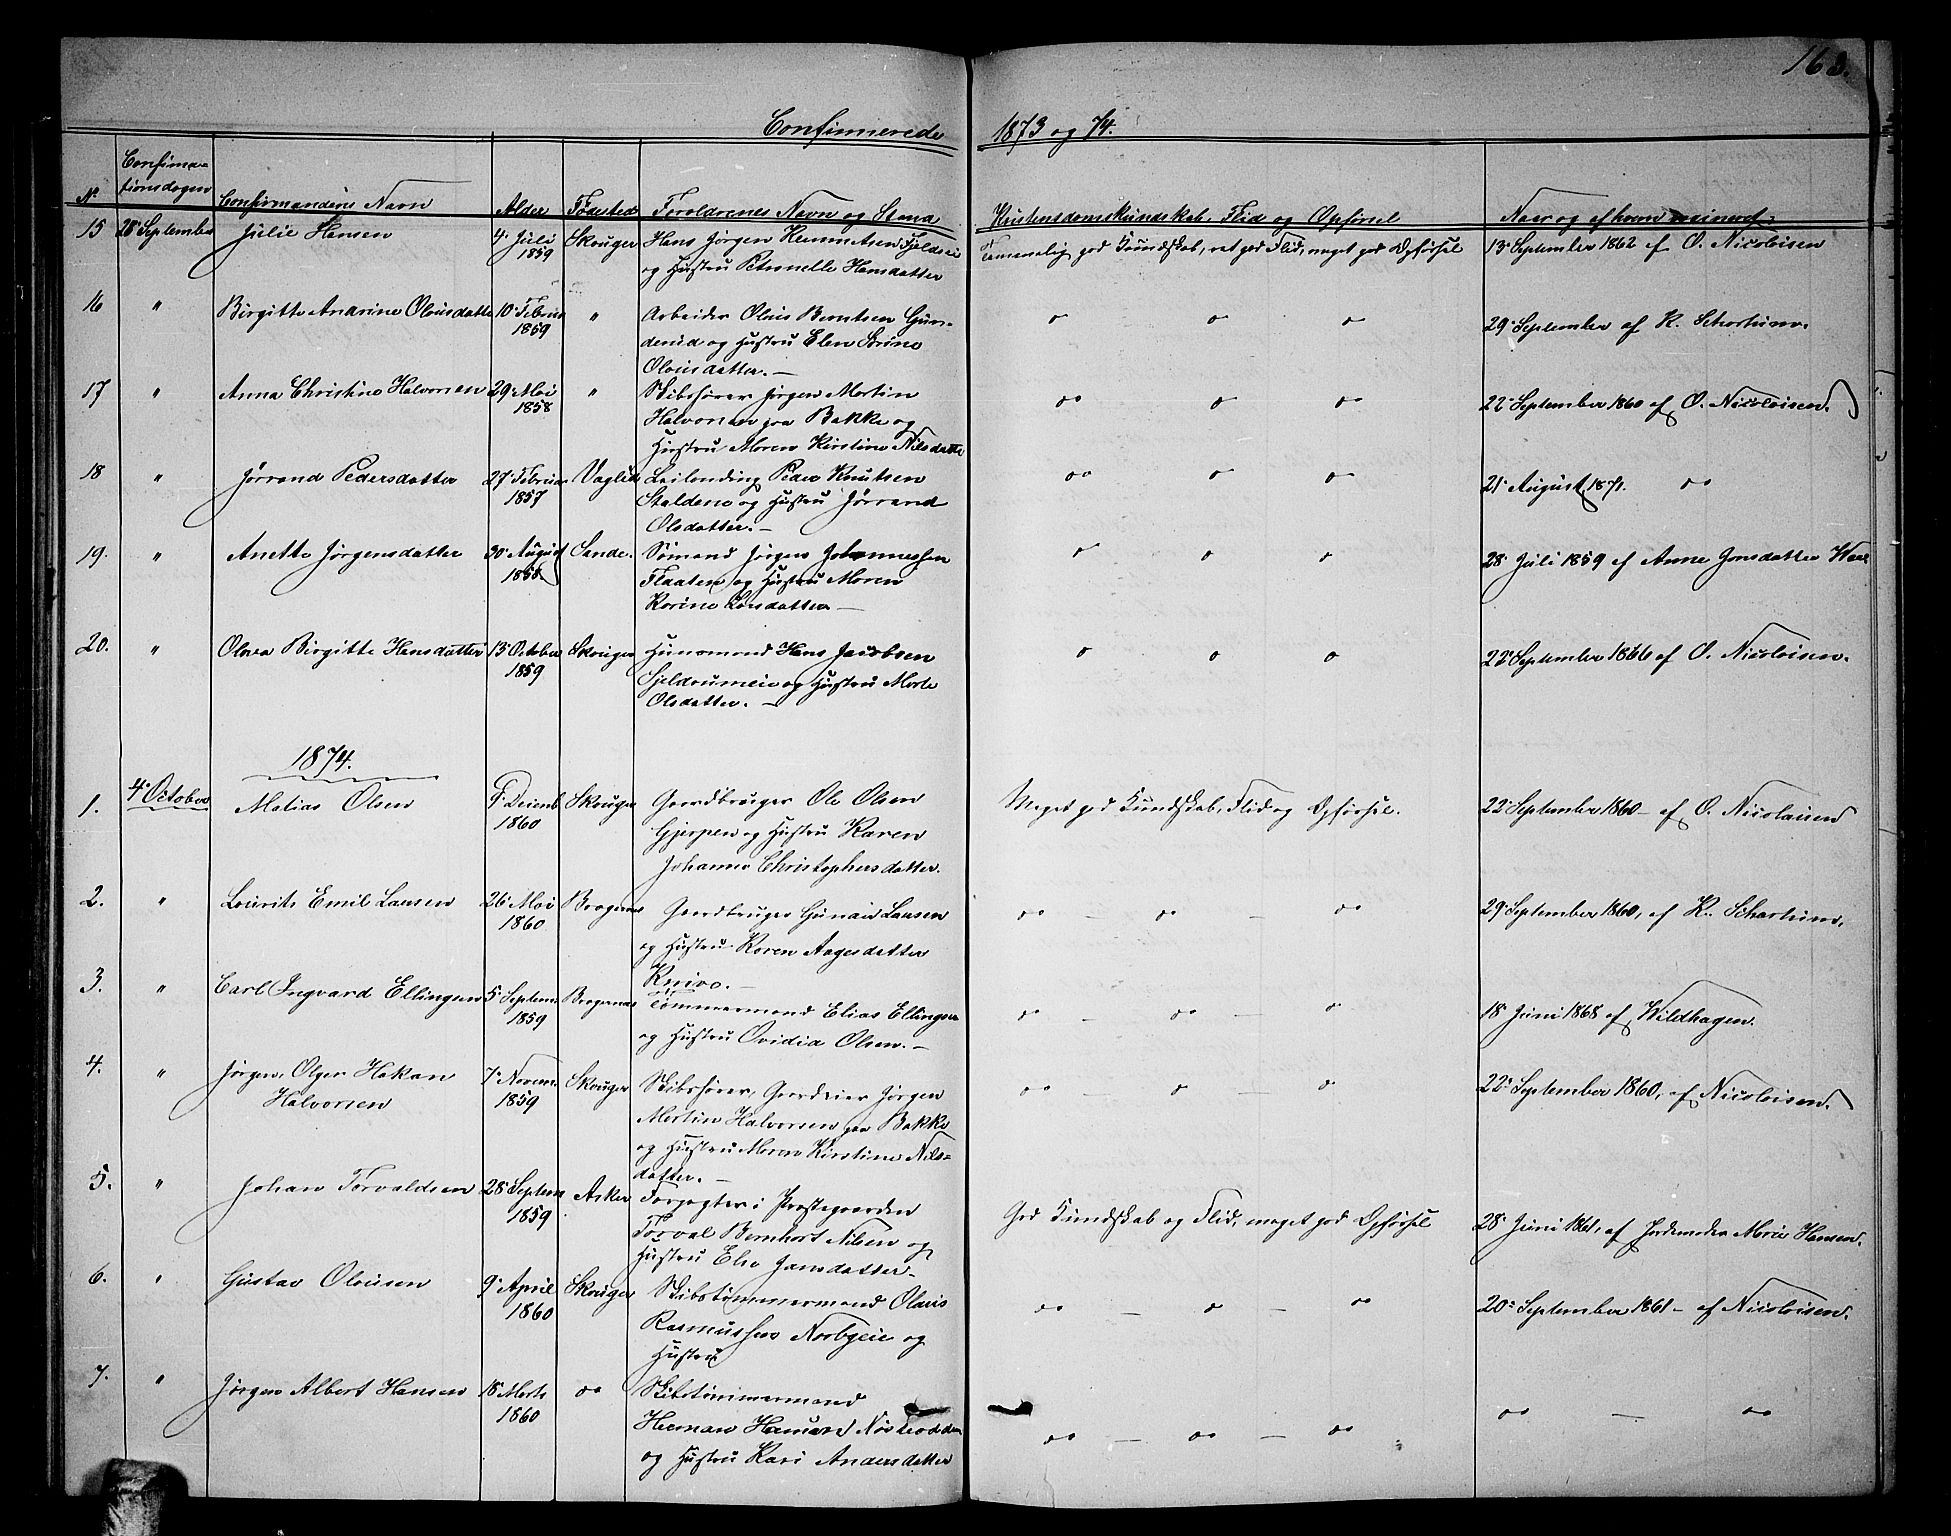 163.
Confirmerede 1873 og 74.
No Confirma-
tionsdagen Confirmandens Navn Alder Fødested Foroldrenes Navn og Stand Kristendomskundskab, Flid og Opførsel Naar og af hvem vaccineret
15 28 September Julie Hansen 4 Juli Skouger Hans Jørgen Tamemelig god Kundskab, ret god Flid, meget god Opførsel 13 September 1862 af O. Nicolaisen
1859 og Hustru Petronelle Hansdatter
16 " Birgitte Andrine Olausdatter 10 Februa " Arbeider Olaus Berntsen Gun- " " " 29 September af K. Scharlum.
1859 derud og Hustru Elen Sørine
Olausdatter. —
17 " Anna Christine Halvorsen 29 Mai " Skibsfører Jørgen Martin " " " 22 September 1860 af O. Nicolaisen.
1858 Halvorsen paa Bakke og
Hustru Maren Kirstine Nilsdatte
18 " Jørrand Pedersdatter 27 Februa Leilending Peder Knutsen " " " 21 August 1871. "
1857 Staldene og Hustru Jørrand
Olsdatter. —
19. " Anette Jørgensdatter 30 August Sande. Sømand Jørgen Johannessen " " " 28 Juli 1859 af Anne Jonsdatter
Flaaten og Hustru Maren
Karine Larsdatter —
20. " Olava Birgitte Hansdatter 13 October Skouger Husmand Hans Jacobsen " " " 22 September 1866 af O. Nicolaisen.
1859 og Hustru Marte
Olsdatter. —
1874.
1. 4 October Matias Olsen Deiemb Skouger Gaardbruger Ole Olsen Meget god Kundskab, Flid og Opførsel. 22 September 1860 — af O. Nicolaisen
1860 Gjerpen og Hustru Karen
Johanne Christophersdatter.
2. " Lourits Emil Larsen 26 Mai Bragernæs Gaardbruger Gunair Larsen " — " — " 29 September 1860, af K. Scharlum.
1860 og Hustru Karen Aagesdatter
Knive. —
3. " Carl Ingvard Ellingsen 5 Septem. Bragernæs Tømmermand Elias Ellingsen " — " — " 18 Juni 1868 af Wildhagen.
1859 og Hustru Ovidia Olsen. —
4. " Jørgen, Olger Hakan 7 Novem. Skouger Skibsfører, Gaardeier Jørgen " — " — " 22 September 1860, af Nicolaisen.
Halvorsen 1859 Martin Halvorsen paa Bakke
og Hustru Maren Kirstine Nils-
datter. —
5. " Johan Torvaldsen 28 Septem Asker Forpagter i Præstegaarden God Kundskab og Flid, meget god Opførsel 28 Juni 1861, af Jordemoder Marie Hansen.
1859 Torval Bernhart Nilsen og
Hustru Else Jansdatter.
6. " Gustav Olausen 9 April Skouger Skibstømmermand Olaus " — " — " 20 September 1861 — af Nicolaisen.
1860 Rasmussen Norbyeie og
Hustru
7. " Jørgen Albert Hansen 18 Marts " Skibstømmermand " — " — " " — "
1860 Herman Hansen
og Hustru Kari Andersdatter